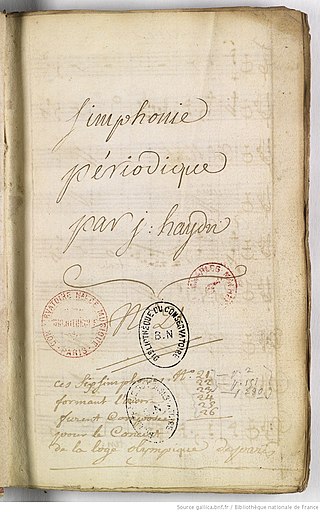 simphonie
périodique
par j: haydn
CONSERVATOIRE NAT. DE MUSIQUE
PARIS
BIBLIOTHÈQUE DU CONSERVATOIRE
B.N
CHARLES
ces Six Simphonies N° 21
22
23
24
25
26
formant
furent Composées
pour le Concert
de la loge olympique de paris
Source gallica.bnf.fr / Bibliothèque nationale de France